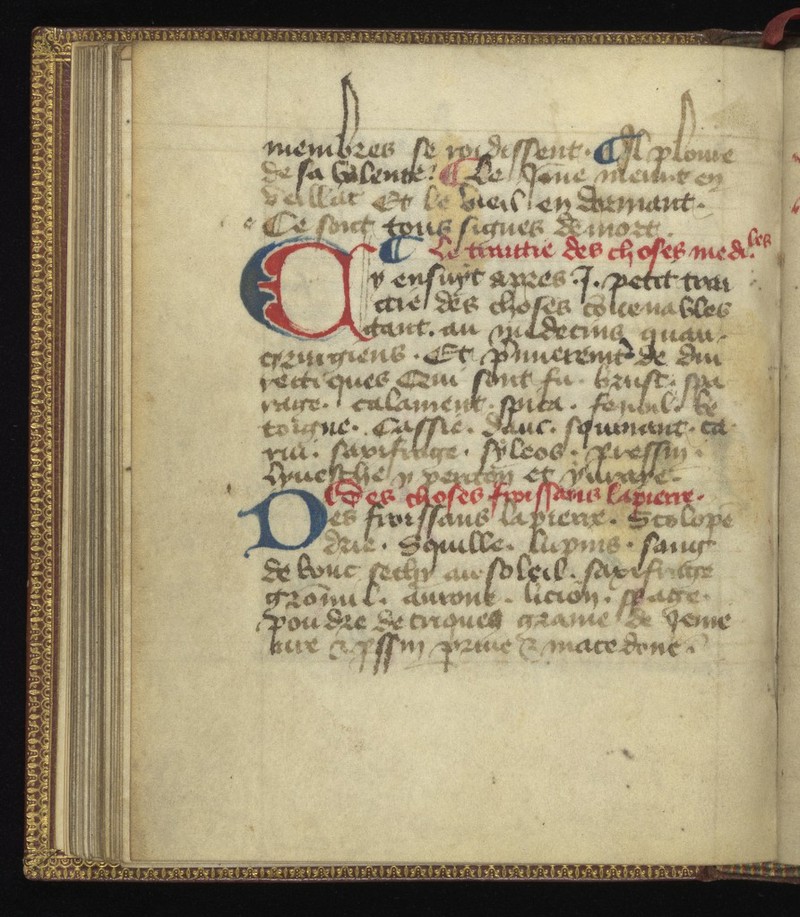 membres se roidissent. Il ploure
de sa valente. Le Jone meurt en
veillāt Et le vieil en dormant.
Ce sont tous signes de mort.
Le traittie des choses medi.les
Cy ensuyt apres .J. petit trai
ctie des choses cōuenables
tant. au medecins quau.
cyrurgiens. Et de diu
rectiques Ceui sont fu. brusc. spa
rage. calament. spica. fenoul. be
toigne. Cassie. dauc. squinant. ca
rui. saxifrage. syleos. pressin.
et
Des choses froissans lapierre.
Des froissans lapierre. Scolope
drie. Squille. lupins. sang
de bouc sechy au soleil. saxifrage
gromil. aurone. licion.
poudre de graine de Jene
ure & pssin & macedone.